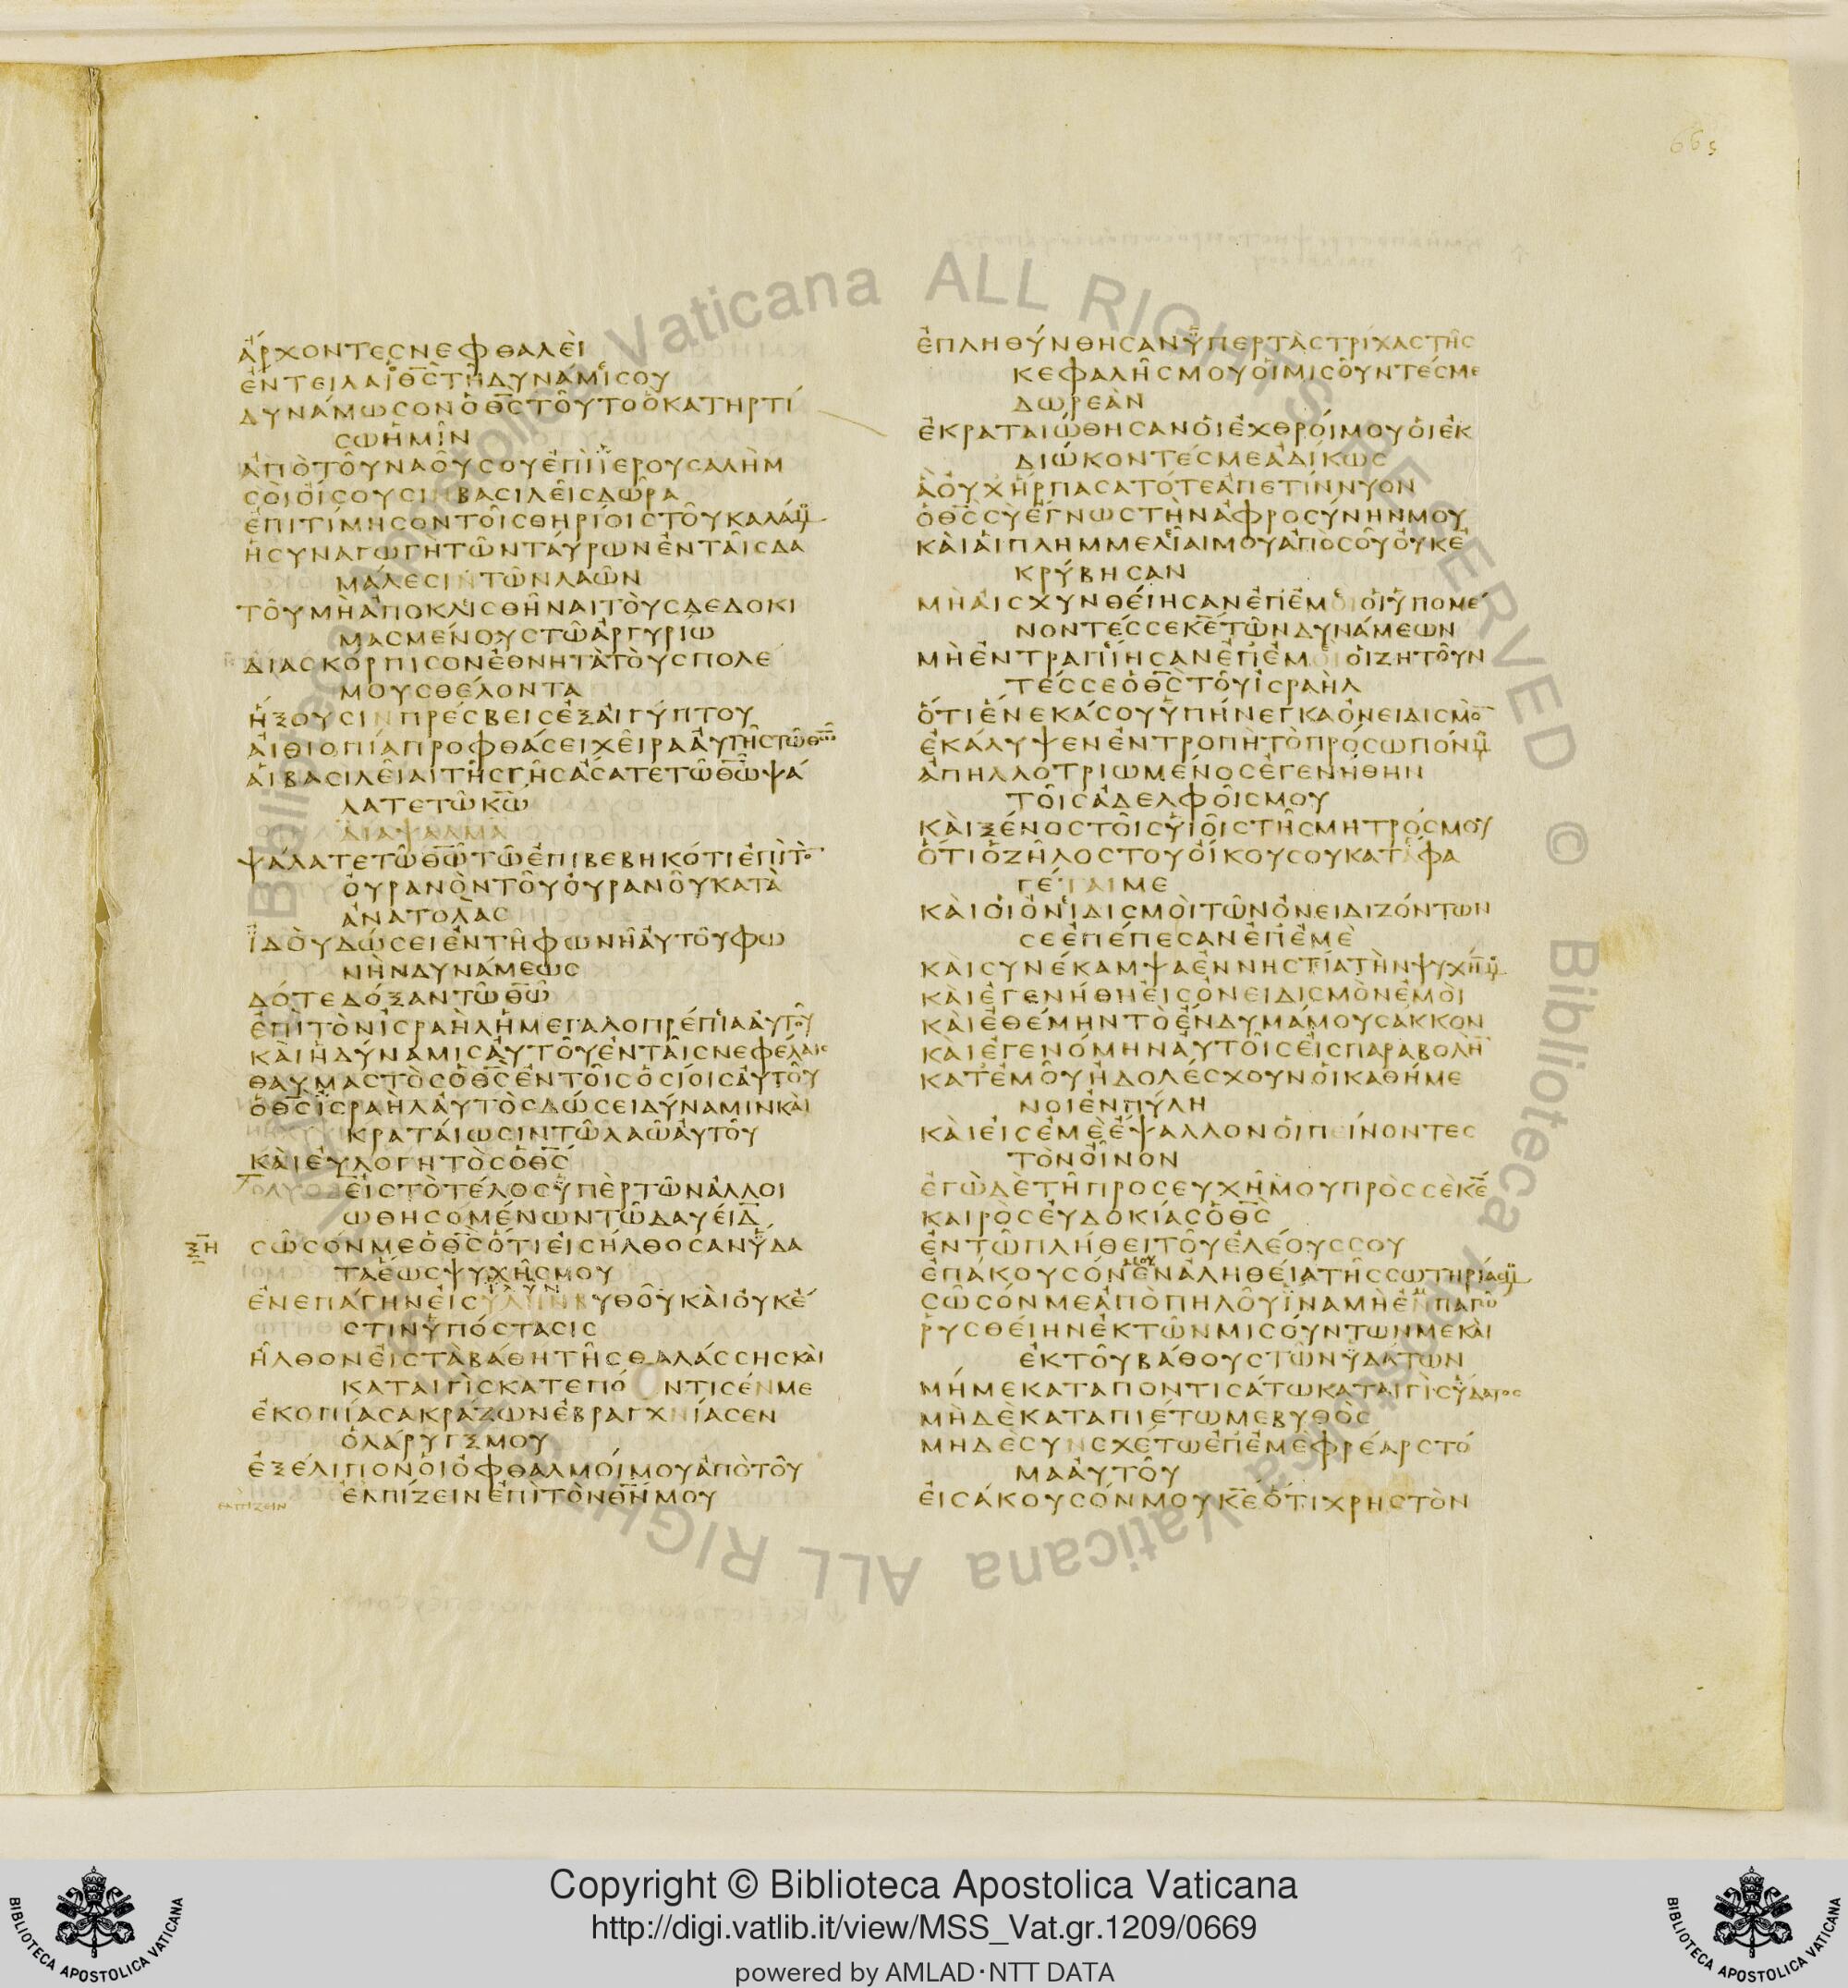 665
ἄρχοντεσνεφθαλὲι
ἔντειλαιὁθ̅σ̅τῆδυνάμισου
δυνάμωσονὁθ̅σ̅τοῦτοὁκατηρτί
σωἡμῖν
ἀπὸτοῦναοῦσουἐπὶϊερουσαλὴμ
σὸιοἴσουσινβασιλεῖσδῶρα
ἐπιτίμησοντοῖσθηρίοιστοῦκαλάμου
ἡσυναγωγὴτῶνταύρωνἐνταῖσδα
μάλεσιντῶνλαῶν
τοῦμὴἀποκλισθῆναιτὸυσδεδοκι
μασμένουστῶἀργυρίω
διασκόρπισονἔθνητὰτὸυσπολε
μουσθέλοντα
ἥξουσινπρέσβεισἐξἀιγύπτου
ἀιθιοπίαπροφθάσειχεῖρααὐτῆστῶθ̅ω̅
ἁιβασιλεῖαιτῆσγῆσἄσατετῶθ̅ω̅ψά
λατετῶκ̅ω̅
διαψαλμα
ψάλατετῶθ̅ω̅τῶἐπιβεβηκότιἐπὶτὸ
ὀυρανὸντοῦὀυρανοῦκατὰ
ἀνατολὰσ
ϊδὸυδώσειἐντῆφωνῆἀυτοῦφω
νὴνδυνάμεωσ
δότεδόξαντῶθ̅ω̅
ἐπὶτὸνἰσραὴλἡμεγαλοπρέπιαἀυτοῦ
κὰιἡδύναμισἀυτοῦἐνταῖσνεφέλαισ
θαυμαστὸσὁθ̅σ̅ἐντοῖσὁσίοισἀυτοῦ
ὁθ̅σ̅ϊσραὴλἀυτὸσδώσειδύναμινκὰι
κραταίωσιντῶλαῶἀυτοῦ
κὰιἐυλογητὸσὁθ̅σ̅
ἐιστὸτέλοσϋπὲρτῶνἀλλοι
ωθησομένωντῶδαυείδ
ξη
σῶσόνμεὁθ̅σ̅ὅτιἐισήλθοσανϋδα
ταἕωσψυχῆσμου
ἐνεπάγηνἐισϋλινβυθοῦκὰιὀυκἔ
στινϋπόστασισ
ἦλθονἐιστὰβάθητῆσθαλάσσησκὰι
καταιγὶσκατεπόντισένμε
ἐκοπίασακράζωνἐβραγχνίασεν
ὁλάρυγξμου
ἐξέλιπονὁιὀφθαλμόιμουἀπὸτοῦ
ἐλπίζεινἐπὶτὸνθ̅ν̅μου
ελπιζειν
ἐπληθύνθησανϋπερτὰστρίχαστῆσ
κεφαλῆσμουὁιμισοῦντέσμε
δωρεὰν
ἐκραταιώθησανὁιἐχθρόιμουὁιἐκ
διώκοντέσμεἀδίκωσ
ἃὀυχἥρπασατότεἀπετίννυον
ὁθ̅σ̅σὺἔγνωστὴνἀφροσύνηνμου
κὰιἁιπλημμελίαιμουἀπὸσοῦὀυκἐ
κρύβησαν
μὴἀισχυνθέιησανἐπἐμοὶοἱϋπομέ
νοντέσσεκ̅ε̅τῶνδυνάμεων
μὴἐντραπίησανἐπἐμοὶοἱζητοῦν
τέσσεὁθ̅σ̅τοῦισραὴλ
ὅτιἕνεκάσουϋπήνεγκαὀνειδισμὸ
ἐκάλυψενἐντροπὴτὸπρόσωπόνμου
ἀπηλλοτριωμένοσἐγενήθην
τοῖσἀδελφοῖσμου
κὰιξένοστοῖσϋιοῖστῆσμητρόσμου
ὅτιὁζῆλοστουοἴκουσουκατέφα
γέταιμε
κὰιὁιὀνιδισμὸιτῶνὀνειδιζόντων
σεἐπέπεσανἐπἐμὲ
κὰισυνέκαμψαἐννηστίατὴνψυχήνμου
κὰιἐγενήθηἐισὀνειδισμὸνἐμὸι
κὰιἐθέμηντὸἔνδυμάμουσάκκον
κὰιἐγενόμηναὐτοῖσἐισπαραβολὴν
κατἐμοῦἠδολέσχουνὁικαθήμε
νοιἐνπύλη
κὰιἐισἐμὲἔψαλλονὁιπείνοντεσ
τὸνοἶνον
ἐγὼδὲτῆπροσευχῆμουπρὸσσὲκ̅ε̅
καιρὸσἐυδοκίασὁθ̅σ̅
ἐντῶπλήθειτοῦἐλέουσσου
ἐπάκουσόνμουἐνἀληθέιατῆσσωτηρίασσου
σῶσόνμεἀπὸπηλοῦϊναμὴἐνπαγῶ
ῥυσθέιηνἐκτῶνμισούντωνμεκὰι
ἐκτοῦβάθουστῶνϋδάτων
μήμεκαταποντισάτωκαταιγὶσϋδατοσ
μὴδὲκαταπιέτωμεβυθὸσ
μηδὲσυνεχέτωἐπἐμὲφρέαρστό
μαἀυτοῦ
ἐισάκουσόνμουκ̅ε̅ὅτιχρηστὸν
Copyright © Biblioteca Apostolica Vaticana
http://digi.vatlib.it/view/MSS_Vat.gr.1209/0669
powered by AMLAD·NTT DATA
BIBLIOTECA APOSTOLICA VATICANA
BIBLIOTECA APOSTOLICA VATICANA